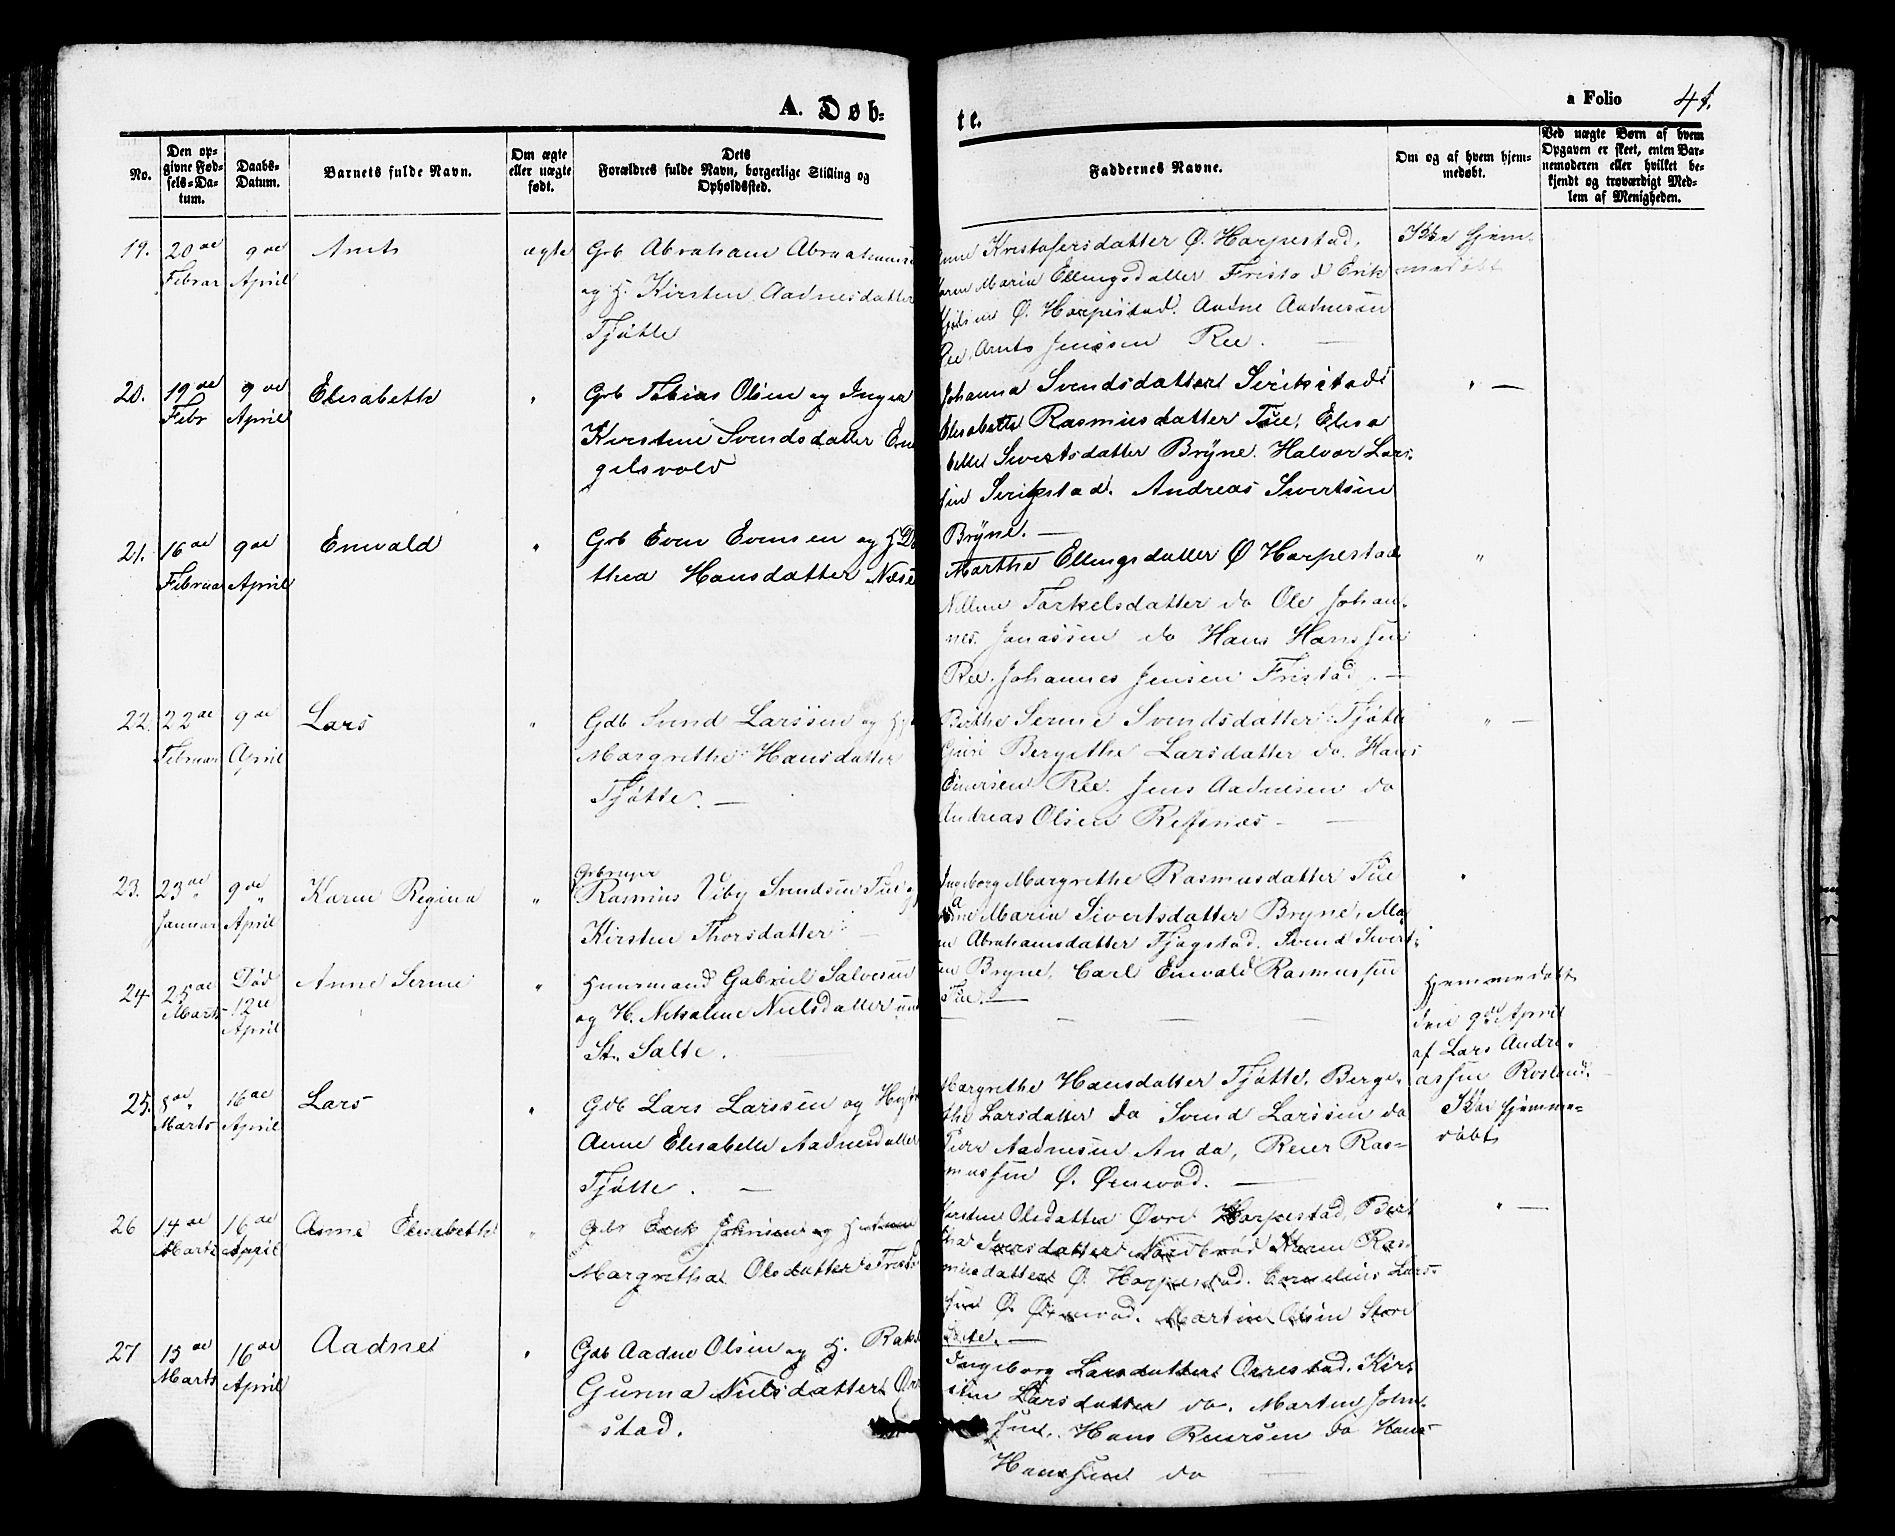 A. Døb-
te.
a Folio 41.
No.
Den op-
givne Fød-
sels-Da-
tum.
Daabs-
Datum.
Barnets fulde Navn.
Om ægte
eller uægte
født.
Dets
Forældres fulde Navn, borgerlige Stilling og
Opholdssted.
Faddernes Navne.
Om og af hvem hjem-
medøbt.
Ved uægte Børn af hvem
Opgaven er skeet, enten Bar-
nemoderen eller hvilket be-
kjendt og troværdigt Med-
lem af Menigheden.
19.
20de
Februar
9de
April
Arnts
ægte
Grb Abraham Abraahamsen
og H. Kirsten Aadnesdatter
Tjøtte
Anne Kristofersdatter Ø. Harpestad.
Maren Maria Ellingsdatter Fristad Erik
Ø. Harpestad. Aadne Aadnesen
Ree, Arnts Jensen Ree.
Ikke hjem-
medøbt
20.
19de
Febr
9de
April
Elisabeth
"
Grb Tobias Olsen og Inger
Kirstine Svendsdatter En
gelsvold
Johanna Svendsdatter Serikstad
Elisabette Rasmusdatter Tue, Elisa
bette Sivertsdatter Bryne. Halvor Lar-
sen Serikstad. Andreas Sivertsen
Bryne. —
" —
21.
16de
Februar
9de
April
Enevald
"
Grb Even Evensen og H Do
thea Hansdatter Næse
Marthe Ellingsdatter Ø Harpestad
Nilline Torkelsdatter do Ole Johan-
nes Jonassen do Hans Hanssen
Ree. Johannes Jensen Fristad. —
"
22.
22de
Februar
9de
April
Lars
"
Gdb Svend Larssen og H
Margrethe Hansdatter
Tjøtte. —
Berthe Serine Svendsdatter Tjøtte
Guri Bergithe Larsdatter do. Hans
Einersen Ree. Jens Aadnesen do
Andreas Olsen Refsnæs —
" —
23.
23de
Januar
9de
April
Karen Regina
"
Rasmus Viby Svendsen Tue og
Kirsten Thorsdatter —
Ingeborg Margrethe Rasmusdatter Tue
Maria Sivertsdatter Bryne, Ma
Abrahamsdatter Tjøgstad. Svend Sivert-
sen Bryne, Carl Enevald Rasmussen
Tue. —
"
24
25de
Marts
Død
12te
April
Anne Serine
"
Huusmand Gabriel Salvesen
og H. Netsaline Nielsdatter und
St. Salte.
— — — —
Hjemmedøbt
den 9de April
af Lars Andre-
assen Rosland.
25.
5de
Marts
16de
April
Lars
"
Gdb Lars Larssen og Hust
Anne Elisabeth Aadnesdatter
Tjøtte. —
Margrethe Hansdatter Tjøtte. Berge-
the Larsdatter do Svend Larssen do
Peer Aadnesen Anda, Reier Ras-
mussen Ø. Ørnevad. —
Ikke hjemme-
døbt
26
14de
Marts
16de
April
Anne Elisabeth
"
Gdb Erik Johnsen og Hustrue
Margretha Olsdatter Fristad
Kirsten Olsdatter Øvre Harpestad, Bert
hea Iversdatter Nordbrød Karen Ras-
musdatter Ø. Harpestad. Cornelius Lars-
sen Ø. Ørnevad. Martin Olsen Store
Salte. —
" —
27
15de
Marts
16de
April
Aadne
"
Gdb Aadne Olsen og H. Rakel
Gurina Nielsdatter Orre
stad.
Ingeborg Larsdatter Orrestad. Kir-
sten Larsdatter do. Martin John-
sen. Hans Reiersen do Hans
Hanssen do